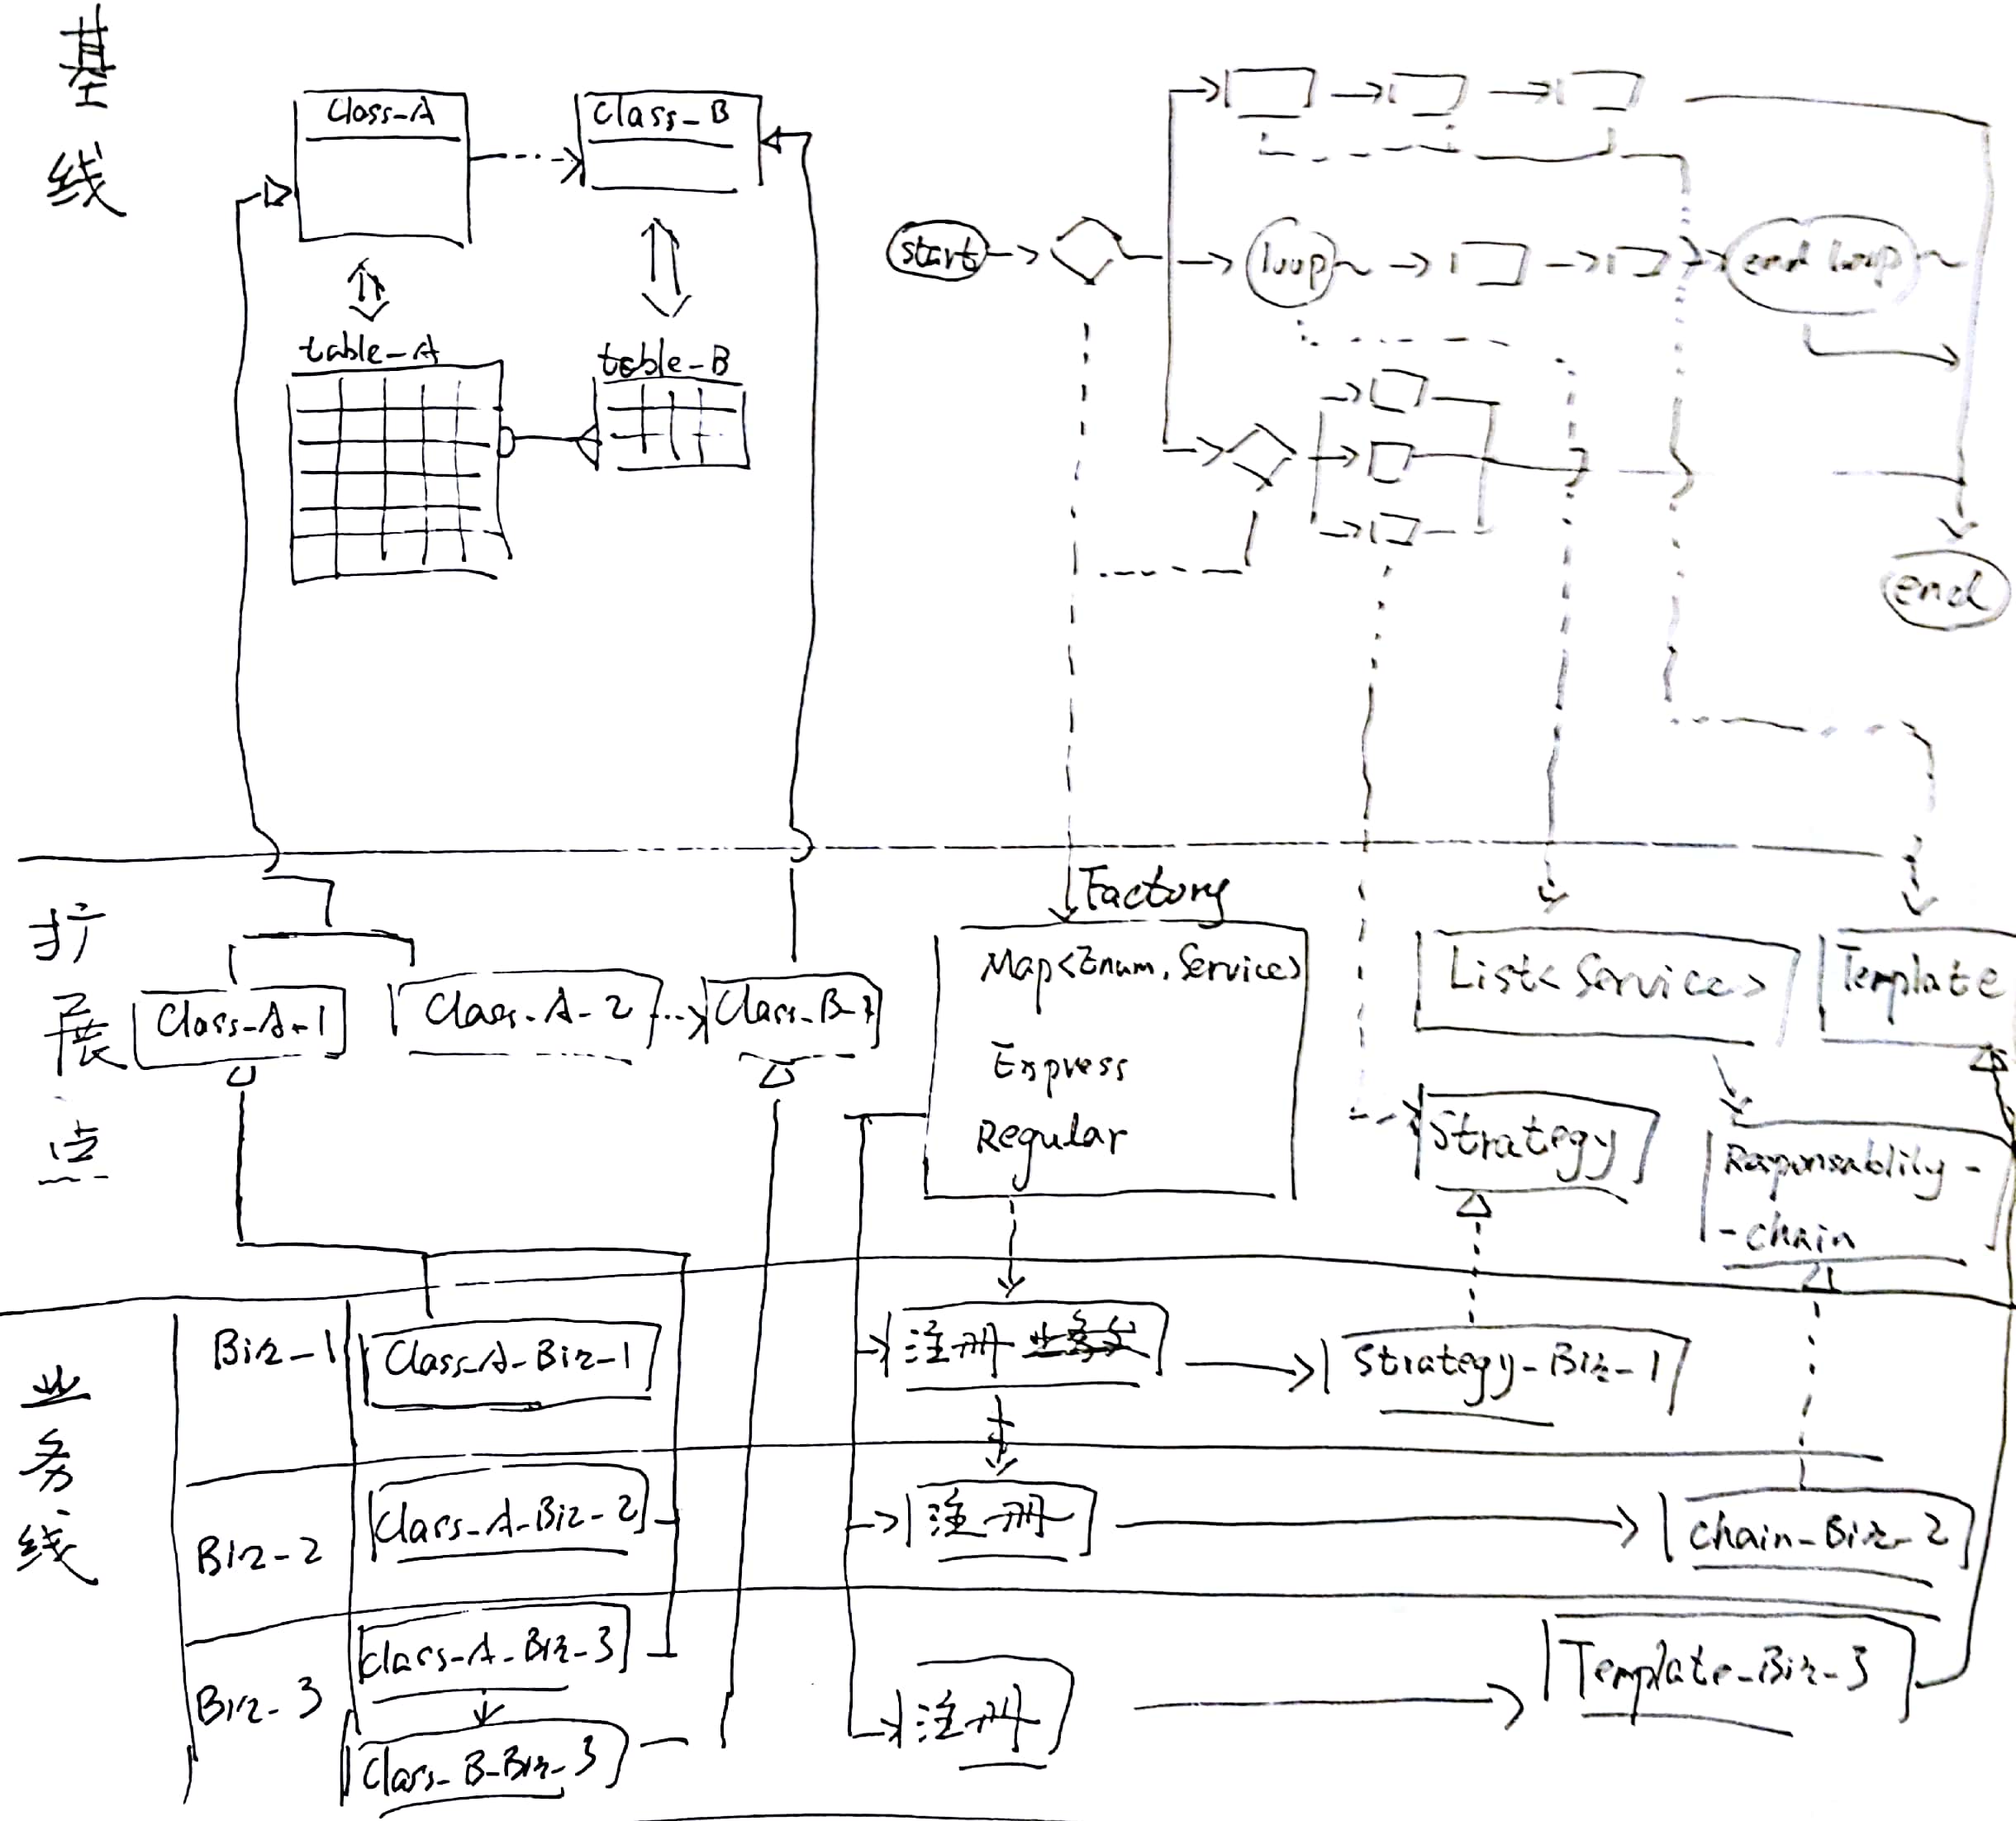 基线
class-A
class-B
table-A
table-B
start
loop
end loop
end
扩展点
Class-A-1
Class-A-2
Class-B-1
Factory
Map<Enum, Service>
Express
Regular
List<Service>
Template
Strategy
Responsablily-
-chain
业务线
Biz-1
Class-A-Biz-1
注册
Strategy-Biz-1
Biz-2
Class-A-Biz-2
注册
chain-Biz-2
Biz-3
class-A-Biz-3
Class-B-Biz-3
注册
Template-Biz-3